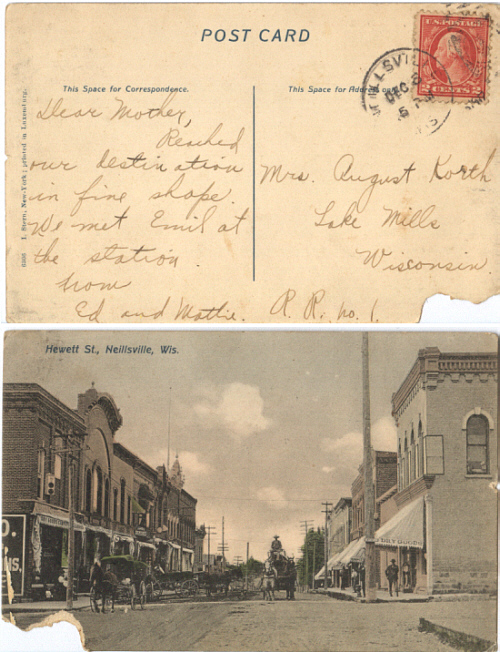 POST CARD
U.S. POSTAGE
2 CENTS 2
DEC 8
5 P
WIS
This Space for Correspondence.
This Space for Address only.
Dear Mother,
Reached
our destination
in fine shape.
We met Emil at
the station.
from
Ed and Mattie.
Mrs. August Korth
Lake Mills
Wisconsin.
R. R. no. 1.
6305 I. Stern, New-York; printed in Luxemburg.
Hewett St., Neillsville, Wis.
DRY GOODS